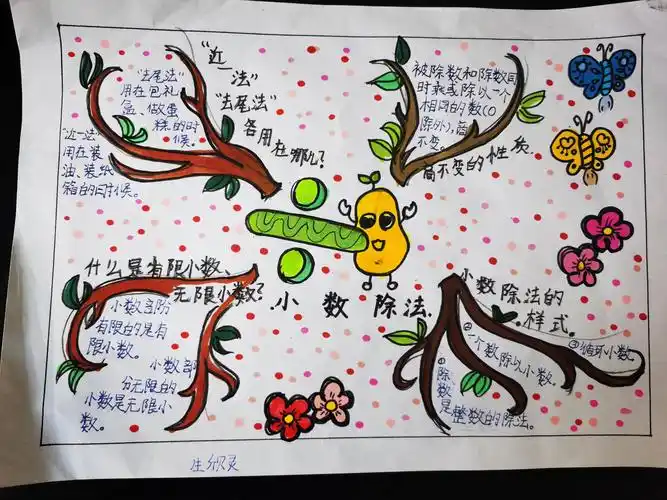 “近一
法”
“去尾法”
各用在哪儿？
“去尾法”
用在包礼
盒、做蛋
糕的时
候。
“近一法”
用在装
油、装纸
箱的时候。
被除数和除数同
时乘或除以一个
相同的数（0
除外），商
不变。
商不变的性质
什么是有限小数、
无限小数？
小数部分
有限的是有
限小数。
小数部
分无限的
小数是无限小
数。
小数除法
小数除法的
样式。
①除数是整数的除法。
②一个数除以小数。
③循环小数